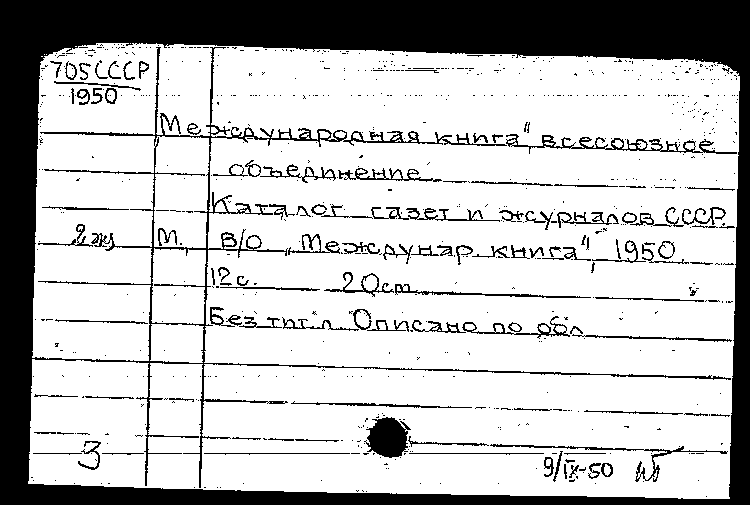 705 СССР
1950
„Международная книга", всесоюзное
объединение
Каталог газет и журналов СССР.
2 экз М., В/О „Междунар. книга", 1950.
12 с. 20 cm.
Без тит. л. Описано по обл.
3
9/IX-50